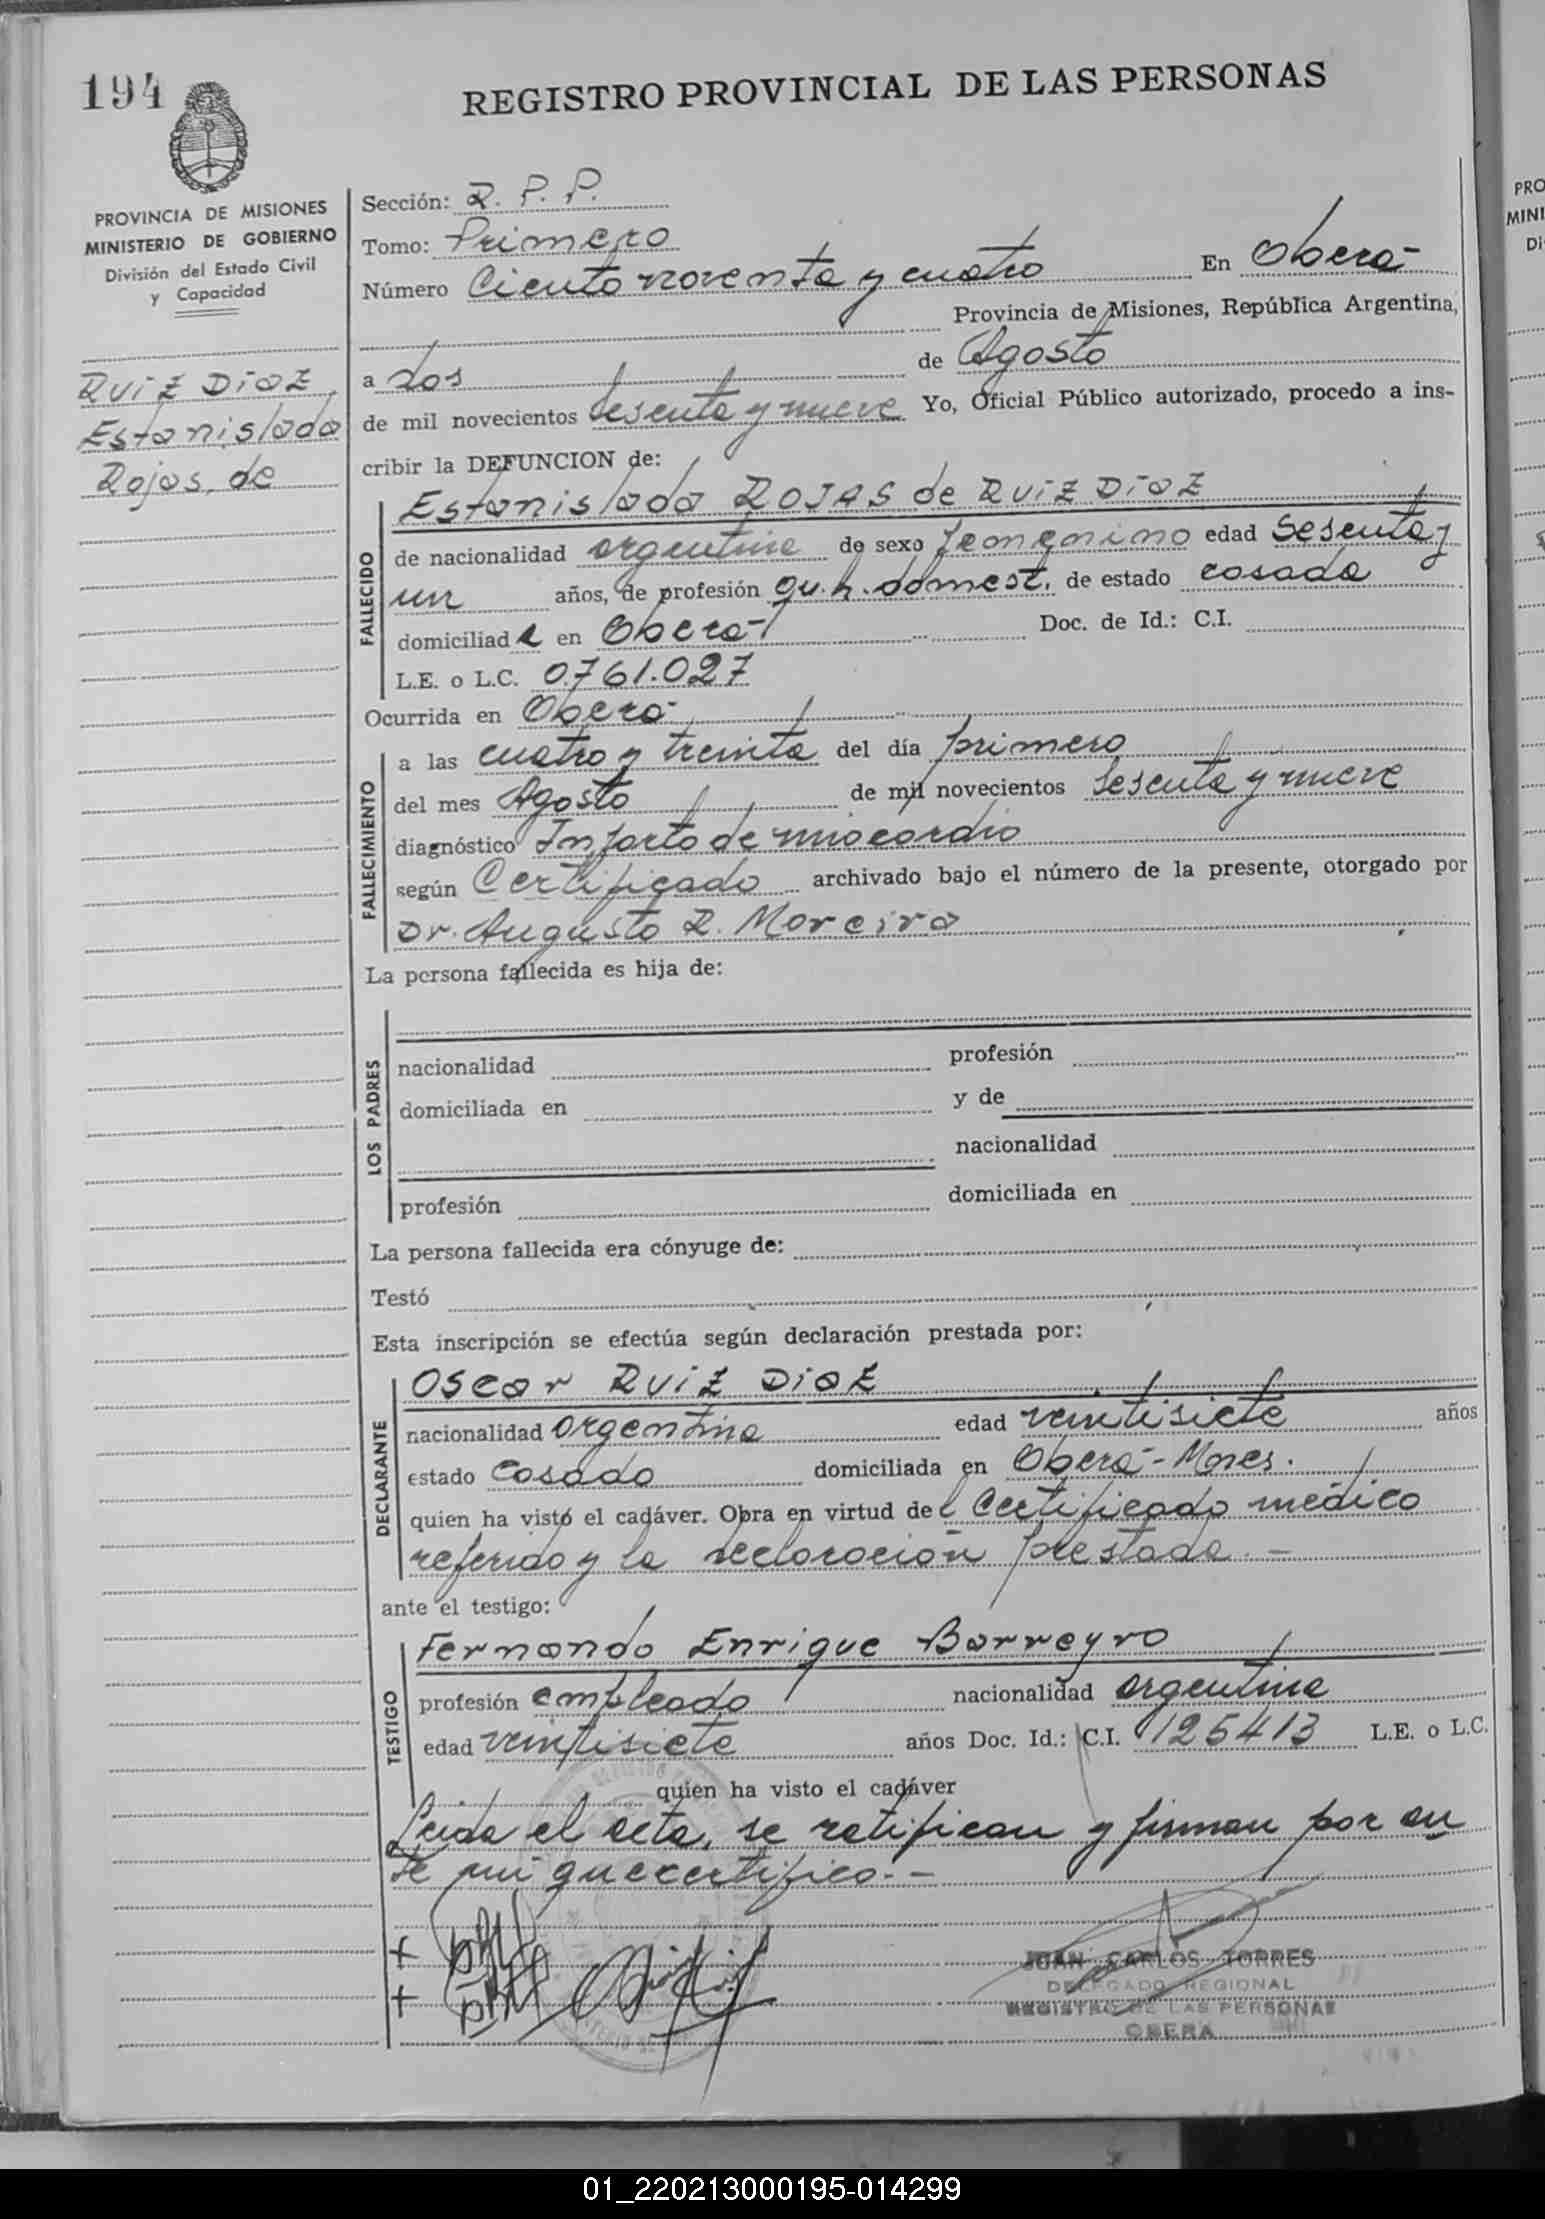 194
REGISTRO PROVINCIAL DE LAS PERSONAS
PROVINCIA DE MISIONES
MINISTERIO DE GOBIERNO
División del Estado Civil
y Capacidad
RUIZ DIAZ,
Estanislada
Rojas, de
Sección: R. P. P.
Tomo: Primero
Número Ciento noventa y cuatro En Oberá-
Provincia de Misiones, República Argentina,
a dos de Agosto
de mil novecientos sesenta y nueve Yo, Oficial Público autorizado, procedo a ins-
cribir la DEFUNCION de:
FALLECIDO
Estanislada ROJAS de RUIZ DIAZ
de nacionalidad argentina de sexo femenino edad sesenta y
un años, de profesión qu. h. domest. de estado casada
domiciliada en Oberá- Doc. de Id.: C.I.
L.E. o L.C. 0.761.027
Ocurrida en Oberá-
FALLECIMIENTO
a las cuatro y treinta del día primero
del mes Agosto de mil novecientos sesenta y nueve
diagnóstico Infarto de miocardio
según Certificado archivado bajo el número de la presente, otorgado por
Dr. Augusto R. Moreira
La persona fallecida es hija de:
LOS PADRES
nacionalidad profesión
domiciliada en y de
nacionalidad
profesión domiciliada en
La persona fallecida era cónyuge de:
Testó
Esta inscripción se efectúa según declaración prestada por:
DECLARANTE
Oscar RUIZ DIAZ
nacionalidad argentina edad veintisiete años
estado casado domiciliada en Oberá- Mnes.
quien ha visto el cadáver. Obra en virtud del Certificado médico
referido y la declaración prestada.-
ante el testigo:
TESTIGO
Fernando Enrique Barreyro
profesión empleado nacionalidad argentina
edad veintisiete años Doc. Id.: C.I. 125413 L.E. o L.C.
quien ha visto el cadáver
Leida el acta, se ratifican y firman por an
te mi que certifico.-
JUAN CARLOS TORRES
DELEGADO REGIONAL
REGISTRO DE LAS PERSONAS
OBERA
01_220213000195-014299